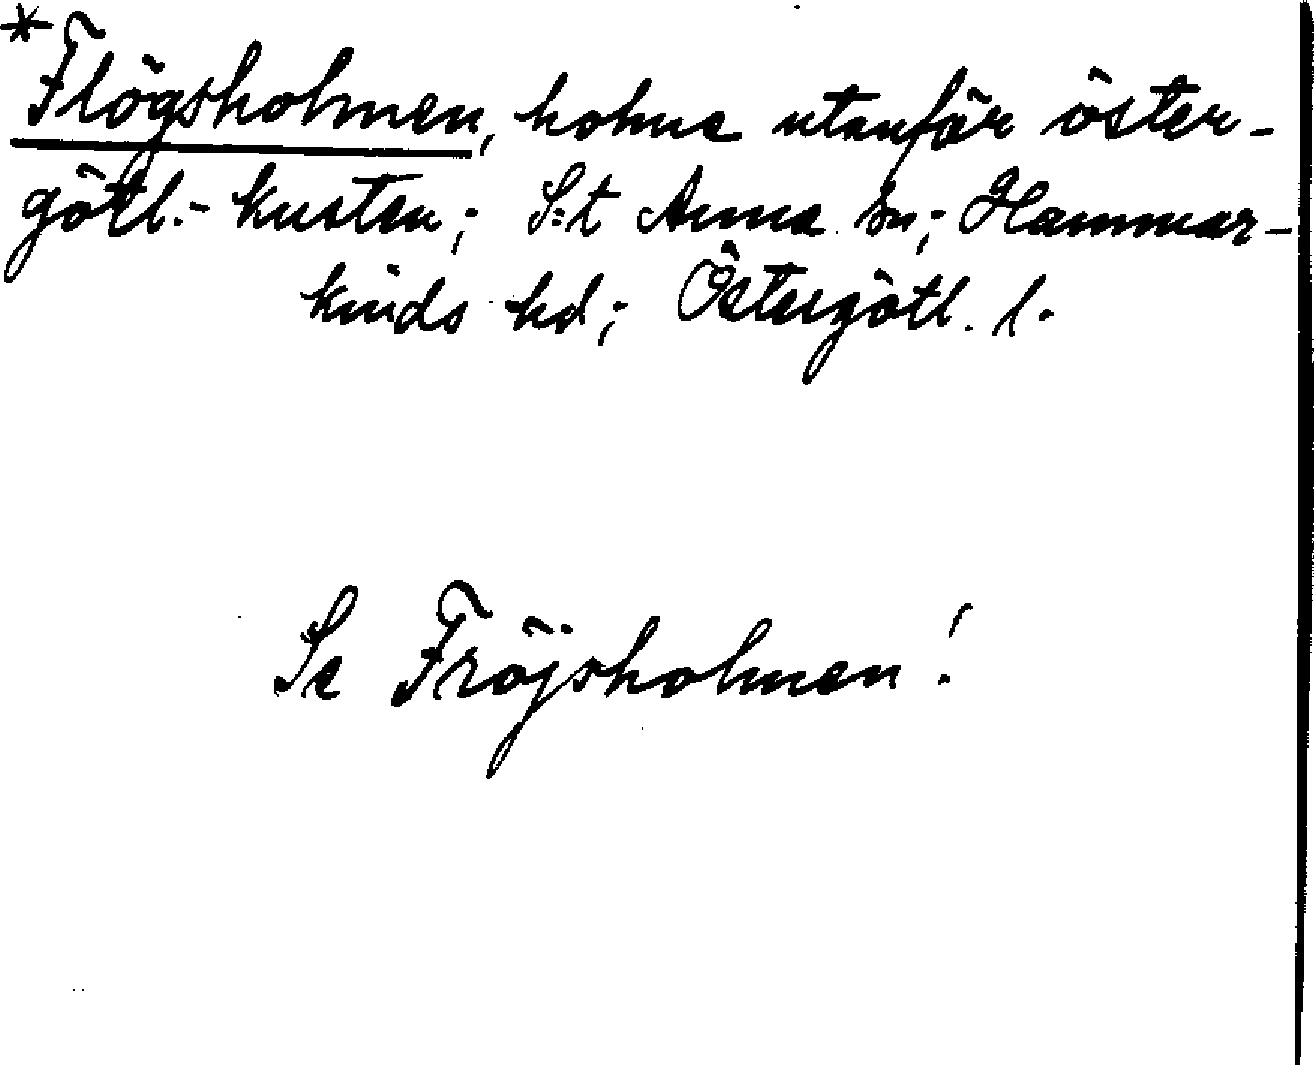 *Flögsholmen, holme utanför öster-
götl.-kusten; S:t Anna sn; Hammar-
kinds hd; Östergötl. l.
Se Fröjsholmen!